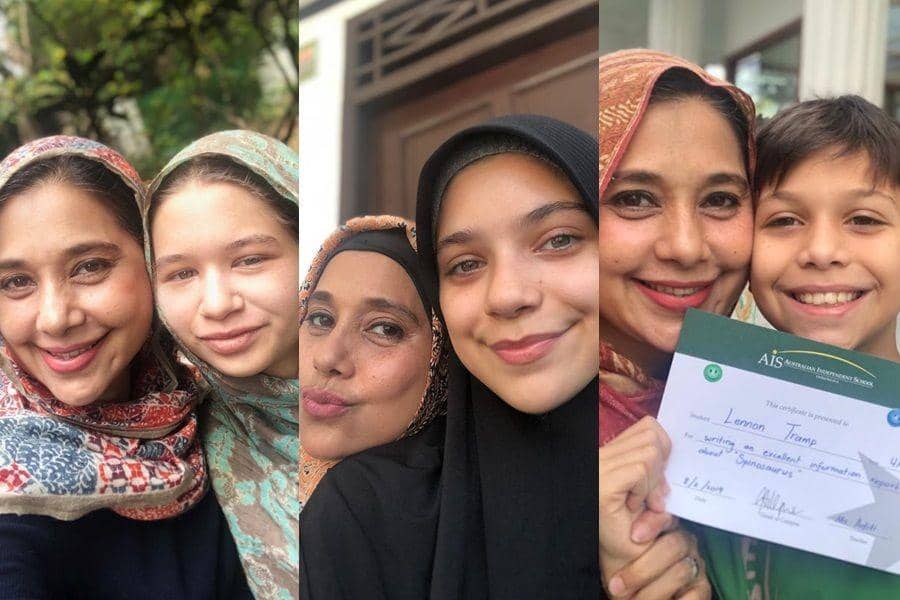 AIS AUSTRALIAN INDEPENDENT SCHOOL
This certificate is presented to
Student Lennon Tramp
For writing an excellent information report
about "Spinosaurus"
8/2/2019
Date
Head of Campus
Teacher